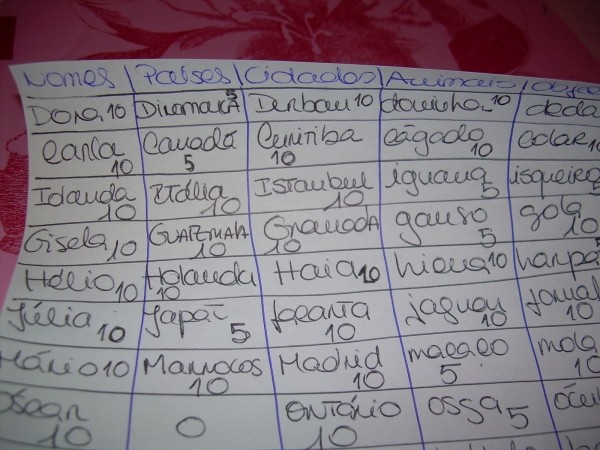 Nomes Países Cidades Animais
Dora 10 Dinamarca 5 Durban 10 doninha 10 deda
Carla 10 Canadá 5 Curitiba 10 cágado 10 colar 10
Iolanda 10 Itália 10 Istanbul 10 iguana 5 isqueiro 5
Gisela 10 Guatemala 10 Granada 10 ganso 5 gola 10
Hélio 10 Holanda 10 Haia 10 hiena 10 harpa 5
Júlia 10 Japão 5 10 jaguar 10 jornal 10
Mário 10 Marrocos 10 Madrid 10 macaco 5 mola 10
Óscar 10 0 Ontário 10 ossga 5 ócul